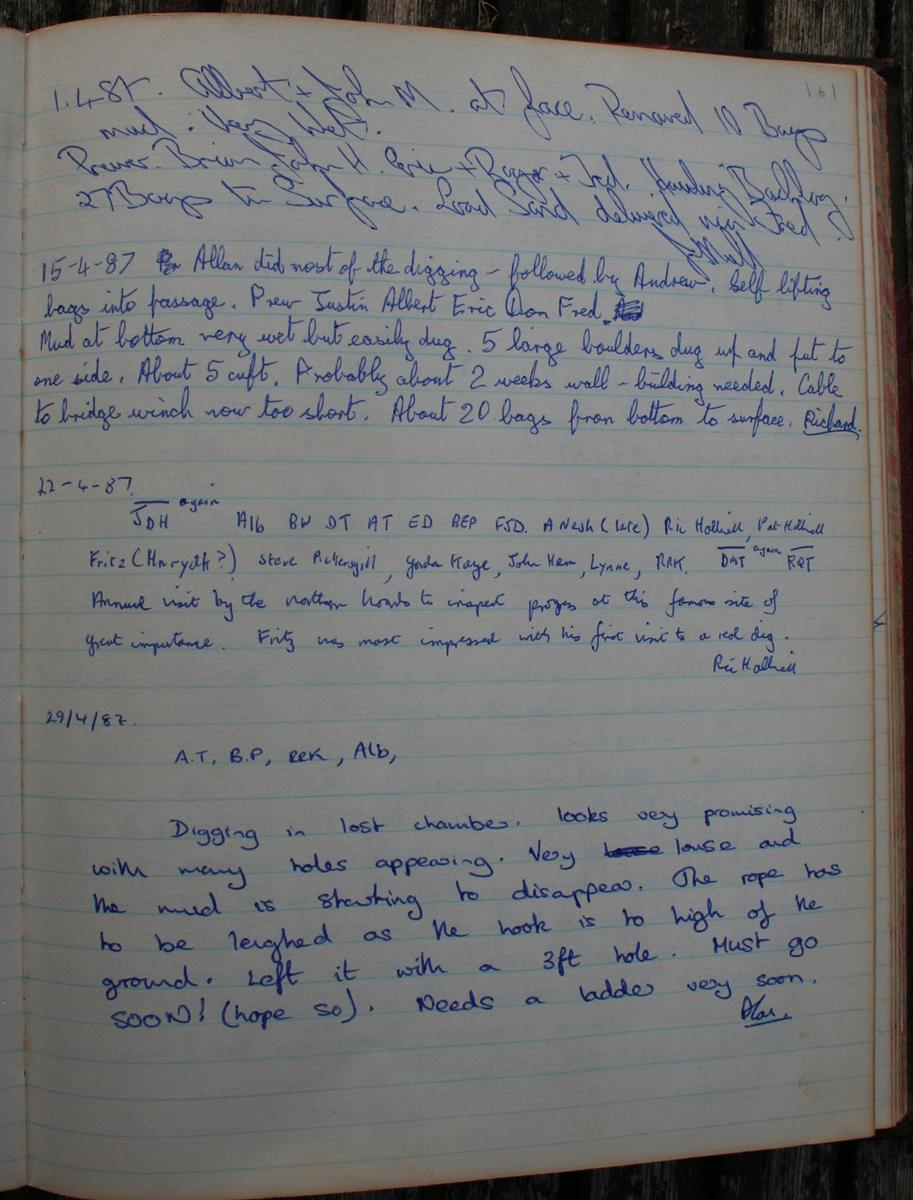 161
1.4.87. Albert + John M. at face. Removed 10 Bags
mud. Very Wet.
Prewer. Brian. John H. Eric + Roger + Fred. Hauling Backlog.
27 Bags to Surface. Load Sand delivered
15-4-87 Allan did most of the digging – followed by Andrew. Self lifting
bags into passage. Prew Justin Albert Eric Don Fred.
Mud at bottom very wet but easily dug. 5 large boulders dug up and put to
one side. About 5 cuft. Probably about 2 weeks wall-building needed. Cable
to bridge winch now too short. About 20 bags from bottom to surface. Richard.
22-4-87.
JDH again Alb BW DT AT ED BEP FJD. A Nash (late) Ric Halliwell, Pat Halliwell
Fritz (Hnrydth?) Steve Pickersgill, Gordon Kaye, John Ham, Lynne, RRK. DAT again RQT
Annual visit by the northern hoards to inspect progress at this famous site of
great importance. Fritz was most impressed with his first visit to a real dig.
Ric Halliwell
29/4/87.
A.T, B.P, RRK, Alb,
Digging in lost chamber. looks very promising
with many holes appearing. Very louse and
the mud is starting to disappear. The rope has
to be leighed as the hook is to high of the
ground. Left it with a 3ft hole. Must go
SOON! (hope so). Needs a ladder very soon.
Alan.